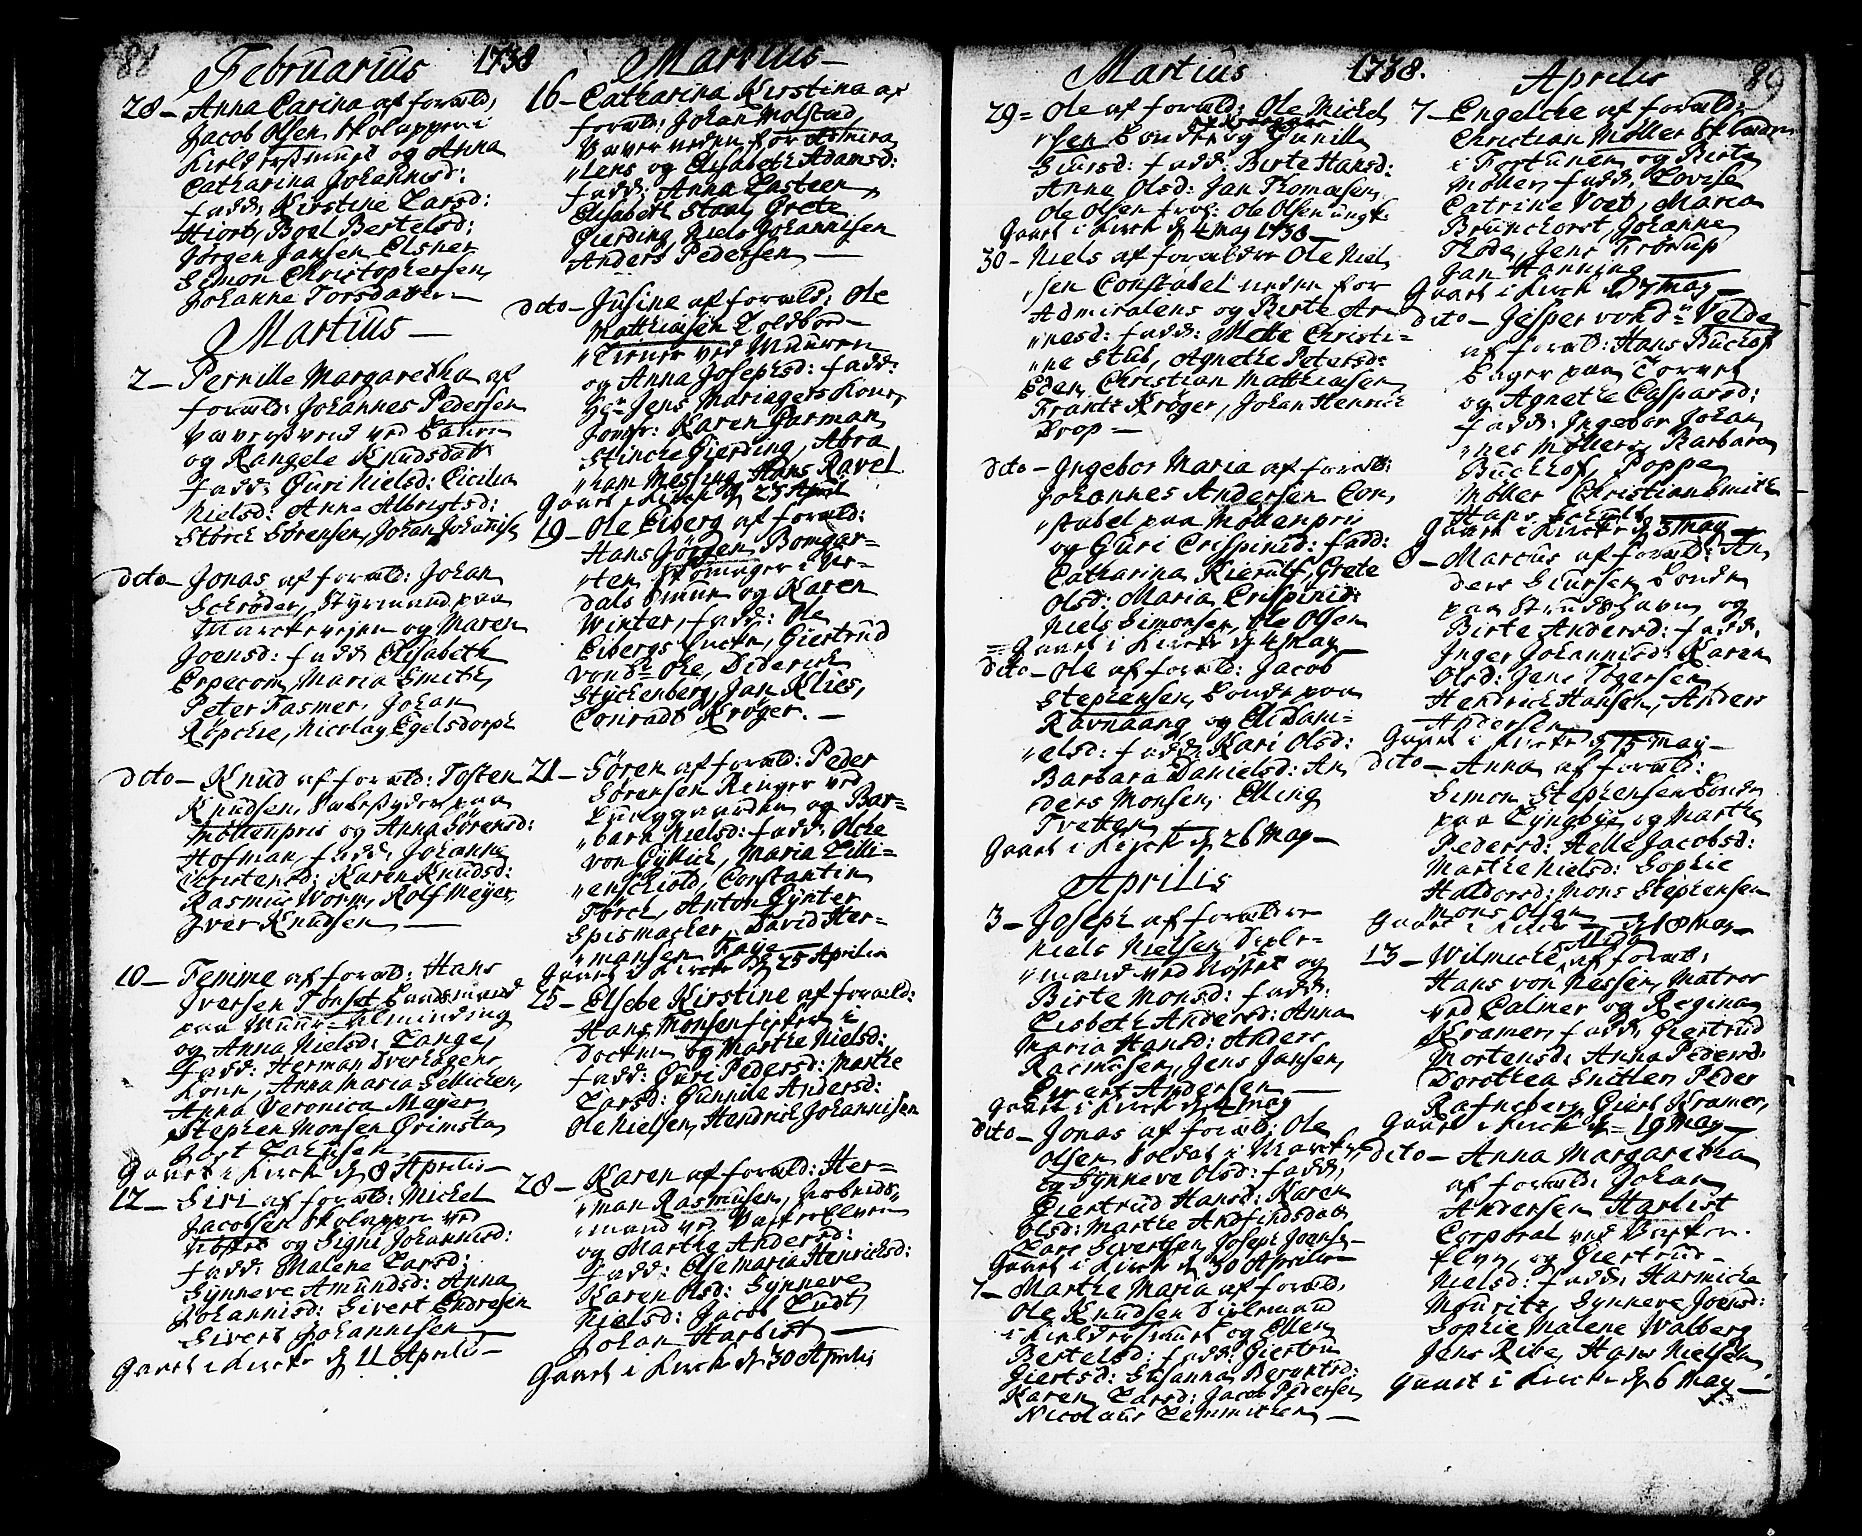 88 Februarius 1738 Martius
28 Anna Carina af foræld:
Jacob Olsen Skoluppen i
og Anna
Catharina Johannisd:
fadd: Kirstine Larsd:
Hiort, Boel Bertelsd:
Jørgen Jansen Elsner
Simon Christophersen,
Johanne Torsdatter
Martius
2 Pernille Margaretha af
foræld: Johannes Pedersen
ved
og Rangele Knudsdatt
fadd: Guri Nielsd: Cicilia
Nielsd: Anna Albrigtsd:
Størck Sörensen, Johan Johannisen
dito Jonas af foræld: Johan
Schröder, Styrmand paa
Marckeveyen og Maren
Joensd: fadd: Elisabeth
Erpecom, Maria Smith,
Peter Fasmer, Johan
Röpcke, Nicolay Egelsdorph
dito Knud af foræld: Tosten
Knudsen, paa
Möllenpris og Anna Sörensd:
Hofman, fadd: Johanne
Christensd: Karen Knudsd:
Rasmus Worm, Rolf Meyer,
Iver Knudsen
10 Femme af foræld: Hans
Iversen Tonset
paa Muur Almending
og Anna Nielsd: Lange,
fadd: Herman Overhagens
Kone, Anna Maria
Anna Veronica Meyer
Stephen Monsen Grimstad
Gaaet i Kircke d 8 Aprilis
12 Siri af foræld: Michel
Jacobsen Skoluppen ved
og Signi Johannisd:
fadd: Malene Larsd:
Synneve Amundsd: Anna
Johannisd: Sivert Endresen
Sivert Johannisen
Gaaet i Kircke d 11 Aprilis
16 Catharina Kirstina af
foræld: Johan Molstad,
Væver neden for Admira
lens og Elisabeth Adamsd:
fadd: Anna Lasteen,
Elisabeth Staal, Grete
Gierding, Niels Johannisen
Anders Pedersen
dito Jusine af foræld: Ole
Matthiasen Toldbod
Tiener ved Muuren
og Anna Josephsd: fadd:
Hr Jens Mariagers Kone,
Jomfr: Karen Garman,
Stincke Gierding, Abra
ham Messing, Hans Ravel
Gaaet i Kircke d 25 April
19 Ole Eiberg af foræld:
Hans Jörgen Bomgar
ten, Skomager i
og Karen
Winter, fadd: Ole
Eibergs Encke, Giertrud
von der Ohe, Diderich
Styckenberg, Jan Klies,
Conradt Kröger.
21 Sören af foræld: Peder
Sörensen Ringer ved
og Bar
bara Nielsd: fadd: Olche
von Gyllich, Maria Lilli
enschiold, Constantin
Törck, Anton Gynter
Spismacker, David Her
mansen Faye
Gaaet i Kircke d 25 Aprilis
25 Elsebe Kirstine af foræld:
Hans Monsen fisker i
Docken og Marthe Nielsd:
fadd: Guri Pedersd: Marthe
Larsd: Gunnile Andersd:
Ole Nielsen, Hendrich Johannisen
28 Karen af foræld: Her
man Rasmusen, Arbeids
mand ved
og Marthe Andersd:
fadd: Else Maria Henrichsd:
Karen Olsd: Synneve
Nielsd: Jacob Ludt,
Johan Harbist
Gaaet i Kircke d 30 Aprilis
Martius 1738. Aprilis 89
29 Ole af foræld: Ole Michel
sen og Gunilla
Siursd: fadd: Birte Hansd:
Anna Olsd: Jan Thomæsen,
Ole Olsen fral: Ole Olsen ungk:
Gaaet i Kirck d 4 May 1738
30 Niels af forældre Ole Niel
sen Constabel neden for
Admiralens og Birte Ar
nesd: fadd: Mette Christi
ne Stub, Agnethe Petersd:
Eden, Christian Matthiasen
Frantz Kröger, Johan Henrich
Drop
dito Ingebor Maria af foræld:
Johannes Andersen Con
stabel paa Möllenpris
og Guri Crispinid: fadd:
Catharina Kierulf, Grete
Olsd: Maria Crispinid:
Niels Simonsen, Ole Olsen
Gaaet i Kircke d 4 May
dito Ole af foræld: Jacob
Stephensen, Bonde paa
Ravnaang, og Eli Dani
elsd: fadd: Kari Olsd:
Barbara Danielsd: An
ders Monsen, Elling
Tvetten
Gaaet i Kircke d 26 May
Aprilis
3 Joseph af forældre
Niels Nielsen
mand ved Nöstet og
Birte Monsd: fadd:
Lisbeth Andersd: Anna
Maria Hansd: Anders
Rasmusen, Jens Jansen,
Evert Andersen
Gaaet i Kircke d 4 May
dito Jonas af foræld: Ole
Olsen Soldat i
og Synneve Olsd: fadd:
Giertrud Hansd: Karen
Olsd: Marthe Andfindsdatt
Lars Sivertsen, Joseph Joensen
Gaaet i Kircke d 30 Aprilis
7 Marthe Maria af foræld:
Ole Knudsen
og Ellen
Bertelsd: fadd: Giertru
Giertsd: Susanna Berentsd:
Karen Larsd: Jacob Pedersen
Nicolaus Lemmichen
7 Engelche af foræld:
Christian Möller
i Fortunen og Birte
Möller, fadd: Lovise
Catrine Voet, Maria
Brunchorst, Johanne
Thode, Jens Trörup
Jan Hanning
Gaaet i Kircke d 7 May
dito Jesper von d Velde
af foræld: Hans Buchof
Bager paa Torvet
og Agnethe Caspersd:
fadd: Ingebor Johan
nes Möllers, Barbara
Buckhof, Poppe
Möller Christian Smith
Hans Schultz
Gaaet i Kircke d 5 May
8 Marcus af foræld: An
ders Siursen, Bonde
paa Strudshavn og
Birte Andersd: fadd:
Inger Johannisd: Karen
Olsd: Jens Togersen
Hendrich Hansen, Anders
Andersen
Gaaet i Kircke d 15 May
dito Anna af foræld:
Simon Stephensen Bonde
paa Lyngbye og Marthe
Pedersd: Helle Jacobsd:
Marthe Nielsd: Sophie
Haldorsd: Mons Stephensen
Mons Olsen
Gaaet i Kircke d 18 May
13 Wilmicke Alida af foræld:
Hans von Nessen, Matros
ved Calmer og Regina
Kramer, fadd: Giertrud
Mortensd: Anna Pedersd:
Dorothea Snitler, Peder
Rafneberg, Giert Kramer,
Gaaet i Kircke d 19 May
dito Anna Margaretha
af foræld: Johan
Andersen Harbist
Corporal ved
og Giertrud
Nielsd: fadd: Harmicke
Mouritz, Synneve Joensd:
Sophie Malene Walberg
Jens Ribe, Hans Nielsen
Gaaet i Kircke d 6 May